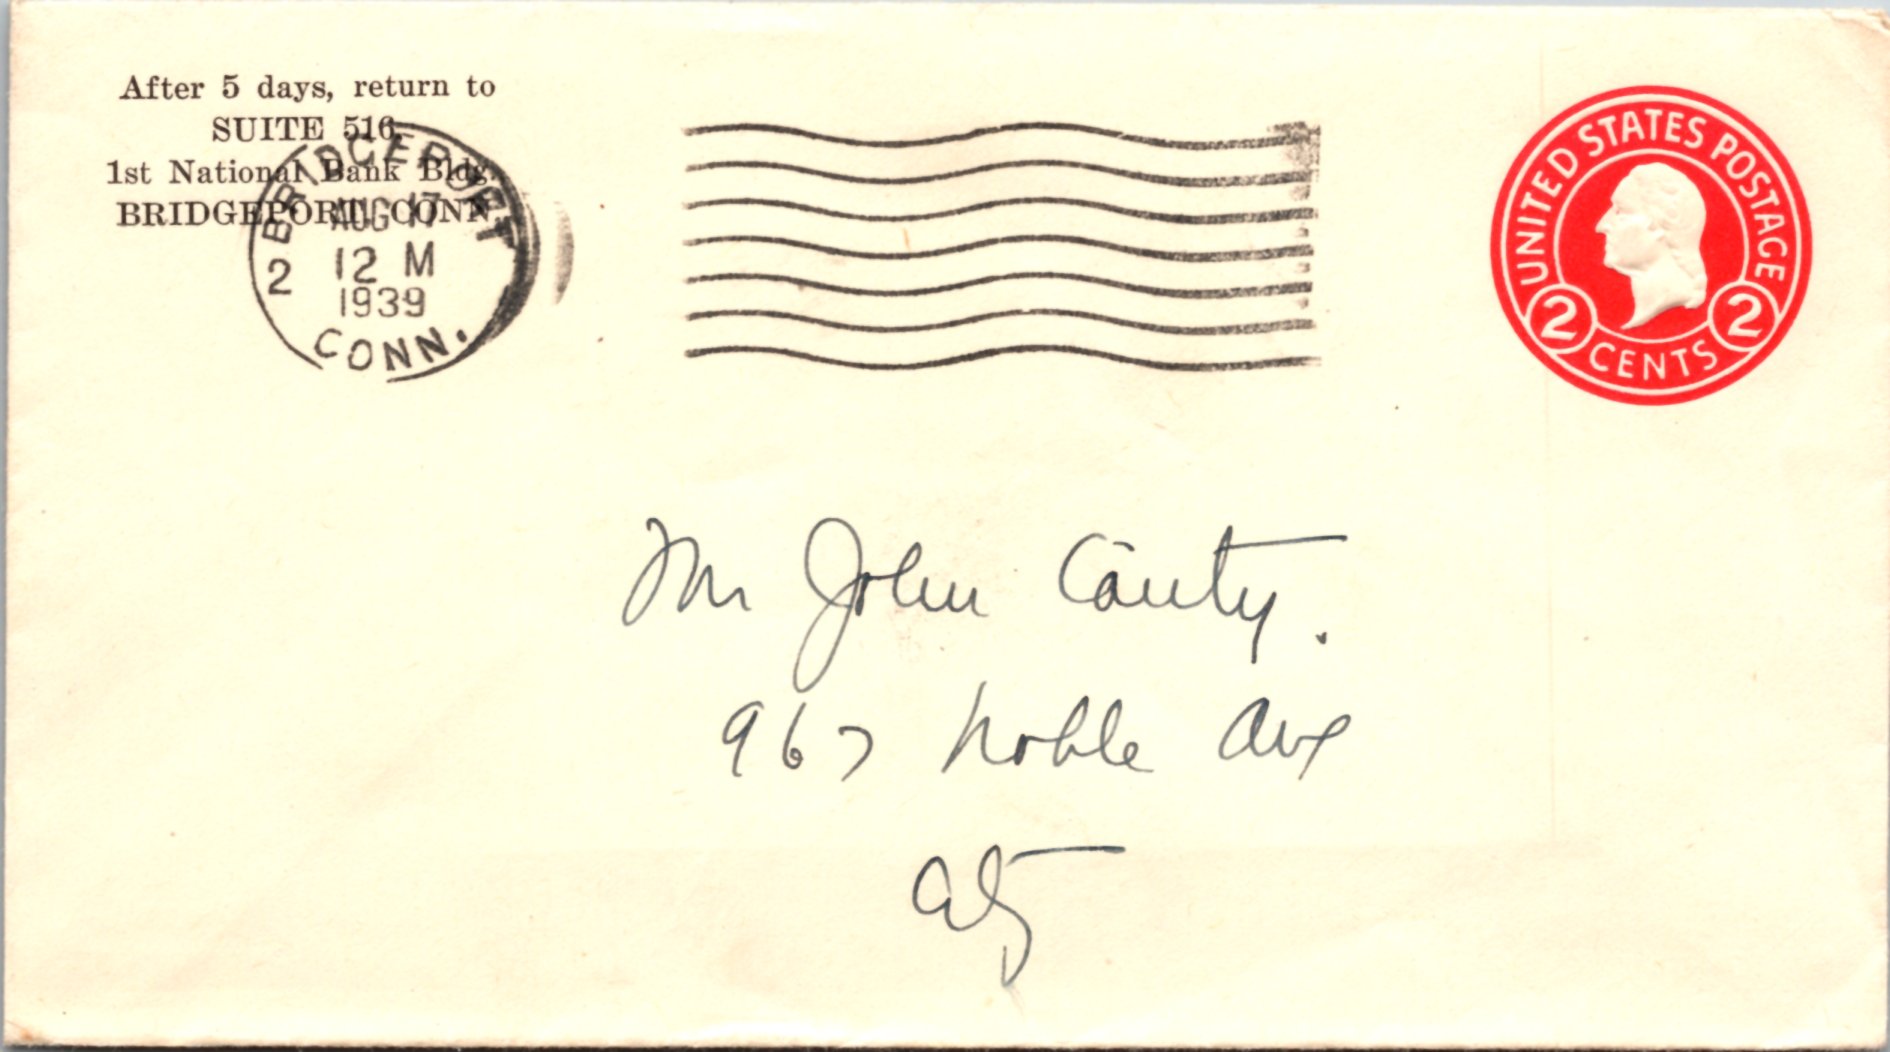 After 5 days, return to
SUITE 516,
1st National Bank Bldg.
BRIDGEPORT, CONN.
BRIDGEPORT
AUG 17
2 12 M
1939
CONN.
UNITED STATES POSTAGE
2 CENTS 2
Mr John Canty.
967 Noble Ave